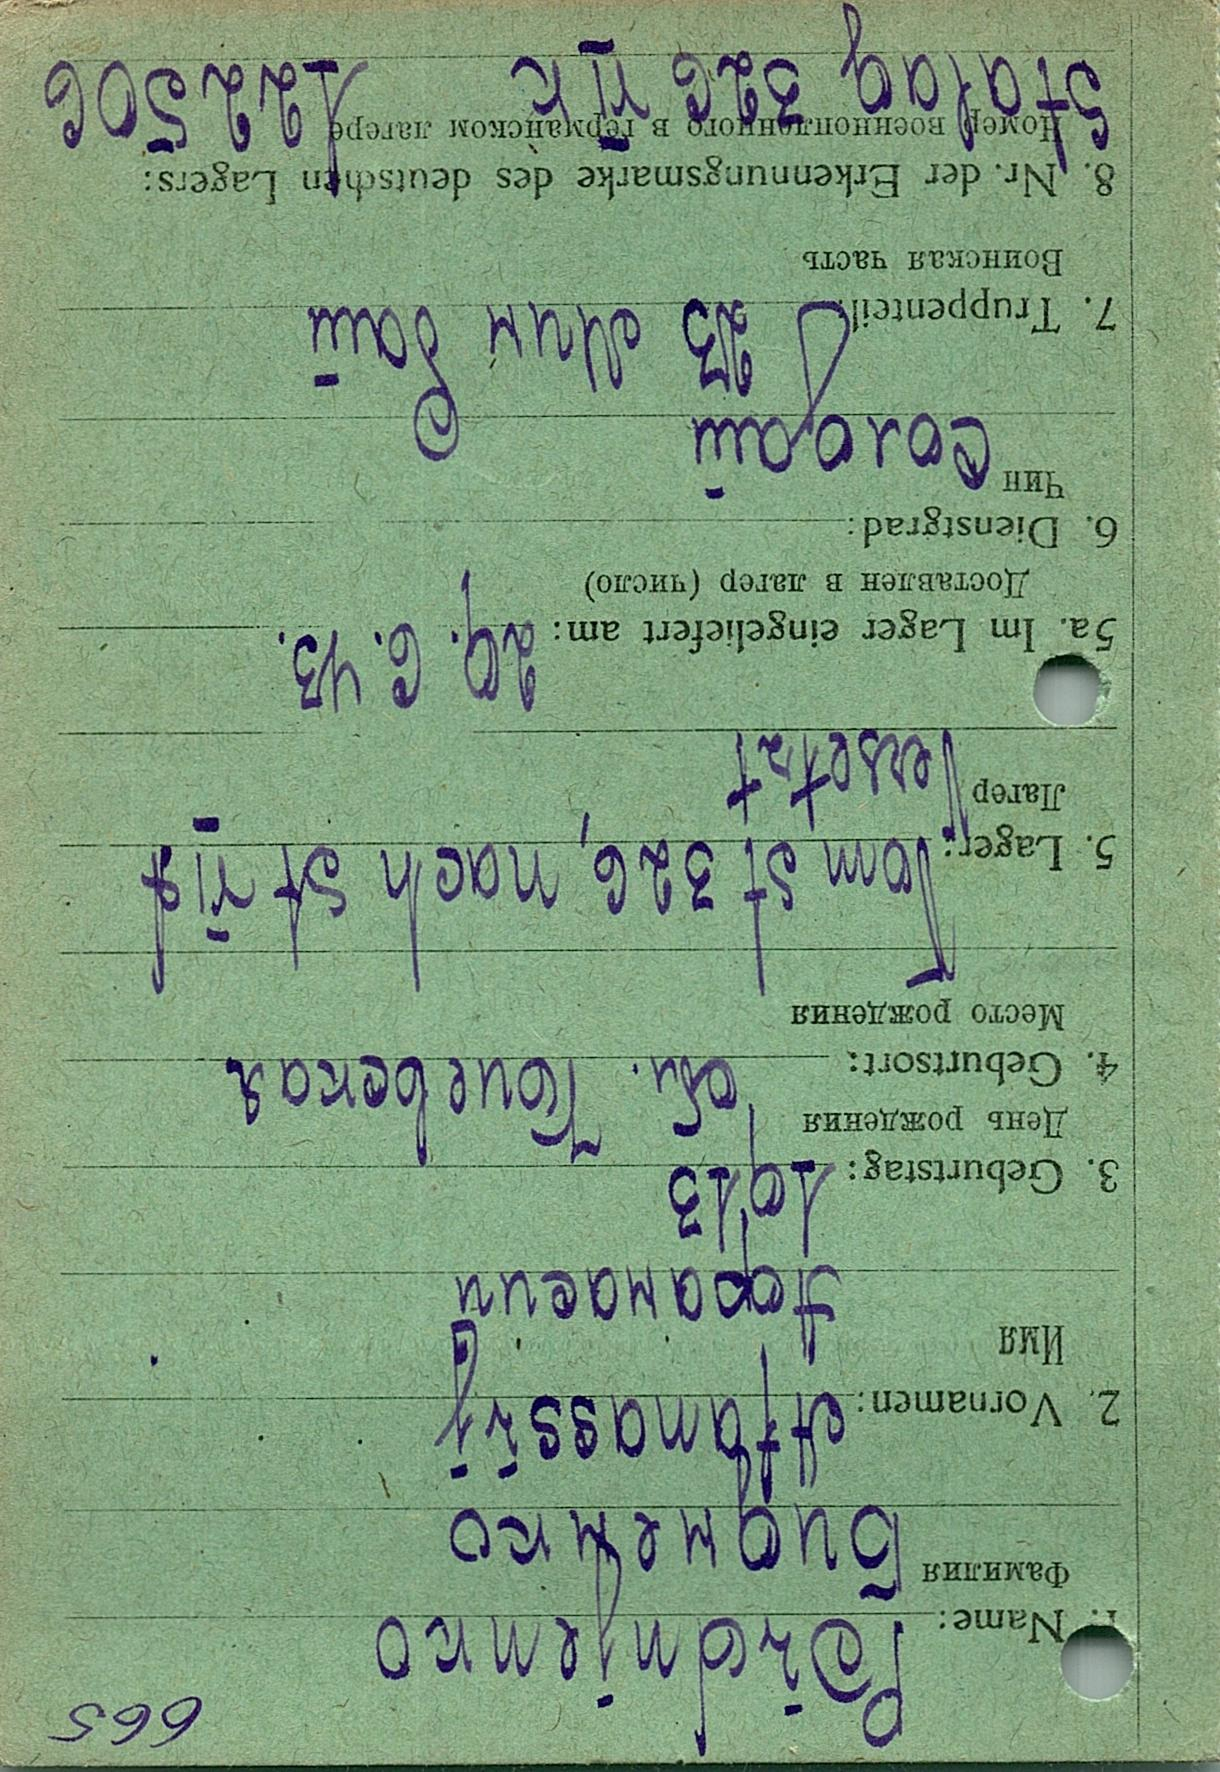 665
1. Name: Bidnjenko
Фамилия Бидненко
2. Vornamen: Afanassij
Имя Афанасии
3. Geburtstag: 1913
День рождения
4. Geburtsort: обл. Киевская
Место рождения
Vom st 326, nach st VI
5. Lager:
Лагер Versetzt
5a. Im Lager eingeliefert am: 29. 6. 43.
Доставлен в лагер (число)
6. Dienstgrad:
Чин солдат
7. Truppenteil: 23 мин бат
Воинская часть
8. Nr. der Erkennungsmarke des deutschen Lagers:
Номер военнопленного в германском лагере
Stalag 326 VI K 122506